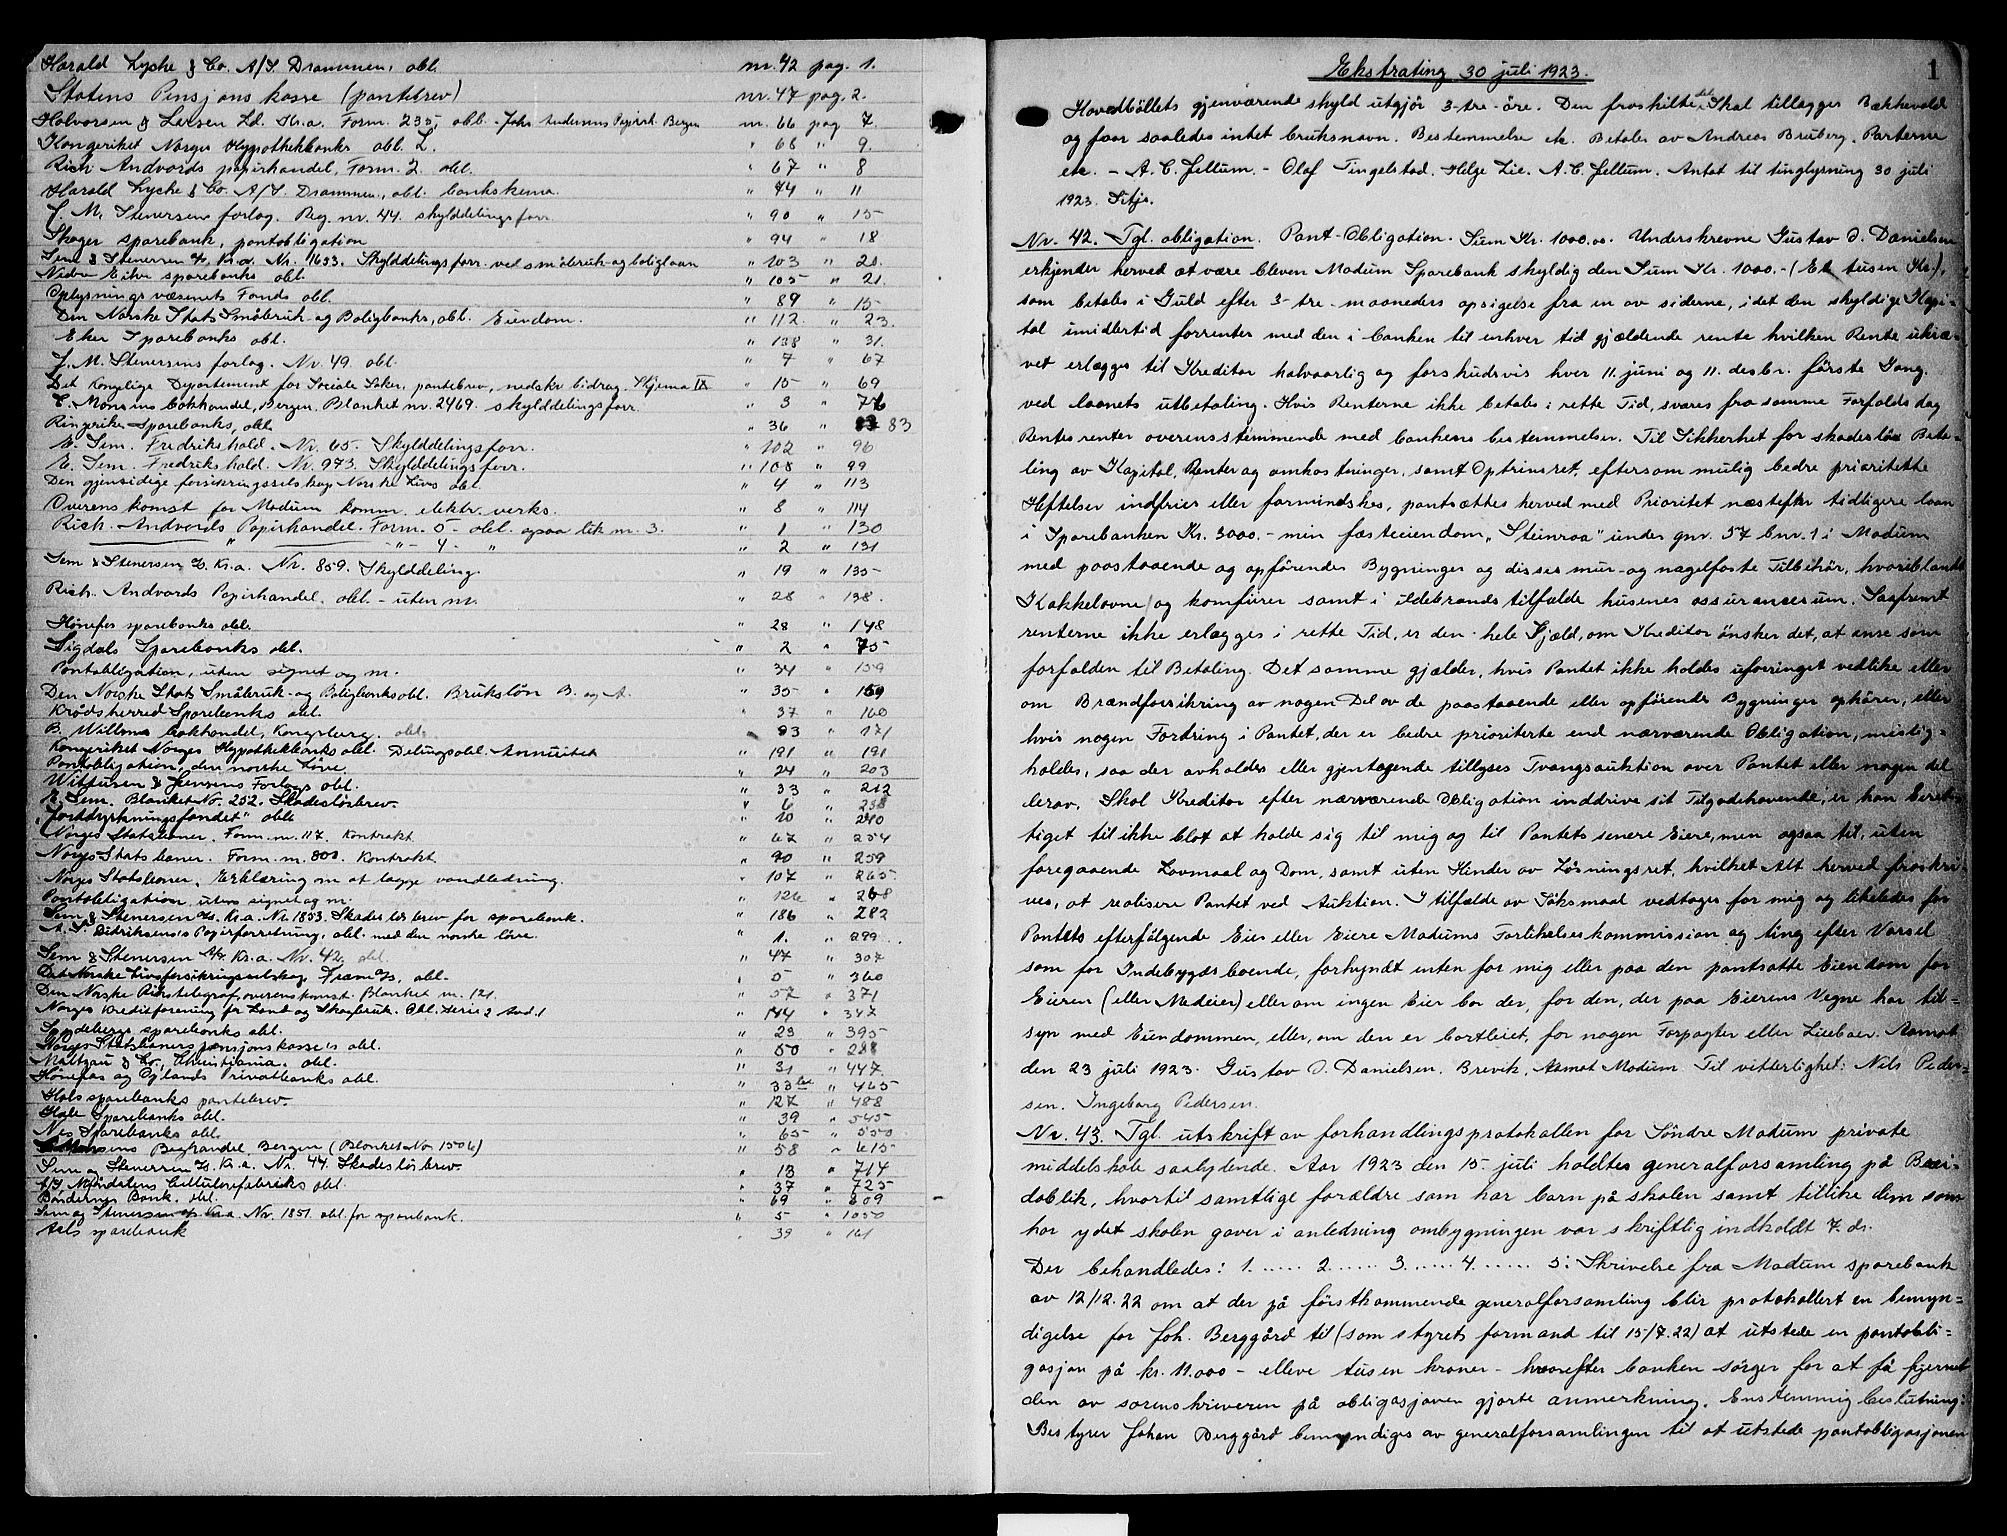 Harald Lyche & Co. A/S. Drammen, obl. nr. 42 pag. 1.
Statens Pensjons kasse (pantebrev) nr. 47 pag. 2.
Halvorsen & Larsen Ld. Kr.a. Form. 235, obl. - Johs. Andersens Papirh. Bergen nr. 66 pag 7.
Kongeriket Norges Hypothekbanks obl. L. " 68 " 9.
Rich. Andvords papirhandel, Form. 2. obl. " 67 " 8
Harald Lyche & Co. A/S. Drammen, obl. bankskema. " 44 " 11
J. M. Stenersens forlag. Reg. nr. 44. skylddelingsforr. " 90 " 15
Skoger sparebank, pantobligation " 94 " 18
Sem & Stenersen A/S Kr.a. Nr. 1633. Skylddelingsforr. ved småbruk- og boliglaan " 103 " 20.
Nedre Eiker sparebanks obl. " 105 " 21.
Oplysningsvæsenets Fonds obl. " 89 " 15
Den Norske Stats Småbruk- og Boligbanks, obl. Eiendom. " 112. " 23.
Eker Sparebanks obl. " 138 " 31.
J. M. Stenersens forlag. Nr. 49. obl. " 7 " 67
Det Kongelige Departement for Sociale Saker, pantebrev, nedskr. bidrag. Skjema IX " 15 " 69
C. Monsens bokhandel, Bergen. Blanket nr. 2469. skylddelingsforr. " 3 " 76
Ringerikes Sparebanks, obl. " 36 " 83
E. Sem. Fredrikshald. Nr. 65. Skylddelingsforr. " 102 " 96
E. Sem. Fredrikshald. Nr. 973. Skylddelingsforr. " 108 " 99
Den gjensidige forsikringsselskap Norske Livs obl. " 4 " 113
Overenskomst for Modum komm. elektr. verks. " 8 " 114
Rich. Andvords Papirhandel. Form. 5 - obl. ogsaa lik nr. 3. " 1 " 130
" - " - 4. " " 2 " 131
Sem & Stenersen A/S. Kr.a. Nr. 859. Skylddeling. " 19 " 135
Rich. Andvords Papirhandel. obl. - uten nr. " 28 " 138.
Hönefos sparebanks obl. " 28 " 148
Sigdals Sparebanks obl. " 2 " 75
Pantobligation, uten signet og nr. " 34 " 159
Den Norske Stats Småbruk- og Boligbanks obl. Brukslån B. og A. " 35 " 159
Krödsherred Sparebanks obl. " 37 " 160
B. Willums bokhandel, Kongsberg. obl. " 93 " 171
Kongeriket Norges Hypothekbanks obl. Delingsobl. Annuitet " 191 " 191
Pantobligation, den norske Löve " 24 " 203
Wittusen & Jensens Forlags obl. " 33 " 212
E. Sem. Blanket No. 252. Skadeslösbrev. " 6 " 238
"Jorddyrkningsfondet" obl. " 10 " 240
Norges Statsbaner. Form. nr. 117. Kontrakt " 67 " 254
Norges Statsbaner. Form. nr. 800. Kontrakt " 90 " 259
Norges Statsbaner. Erklæring om at lægge vandledning. " 107 " 265
Pantobligation, uten signet og nr. " 126 " 268
Sem & Stenersen A/S. Kr.a. Nr. 1853. Skadeslösbrev for sparebank. " 186 " 282
A. S. Didriksens's Papirforretning, obl. med den norske löve. " 1. " 299
Sem & Stenersen A/S Kr.a. Nr. 42. obl. " 47 " 307
Det Norske Livsforsikringsselskap Fram A/S, obl. " 5 " 360
Den Norske Rikstelegraf, overenskomst. Blanket nr. 121. " 57 " 371
Norges Kreditforening for Land og Skogbruk. Obl. serie 2 avd. 1 " 144 " 347
Spydebergs sparebanks obl. " 23 " 395
Norges Statsbaners pensjonskasse's obl. " 50 " 288
Maltzau & Co., Christiania. obl. " 31 " 447
Hönefos og Oplands Privatbanks obl. " 33 " 465
Hols sparebanks pantebrev. " 127 " 488
Hole Sparebanks obl. " 39 " 545
Nes Sparebanks obl. " 65 " 550
Monsens Boghandel Bergen (Blanket No 1506) " 58 " 615
Sem og Stenersen A/S. Kr.a. Nr. 44. Skadeslösbrev. " 13 " 714
A/S Mjöndalens Cellulosefabriks obl. " 37 " 725
Böndernes Bank. obl. " 69 " 809
Sem og Stenersen A/S Kr.a. Nr. 1851. obl. for sparebank. " 5 " 1050
Aals sparebank " 39 " 161
1
Ekstrating 30 juli 1923.
Hovedböllets gjenværende skyld utgjör 3 - tre - öre. Den fraskilte del skal tillægges Bækkevold
og faar saaledes intet bruksnavn. Bestemmelse etc. Betales av Andreas Bruberg. Parterne
etc. - A. C. Jellum. - Olaf Tingelstad. Helge Lie. A. C. Jellum. Antat til tinglysning 30 juli
1923. Sitje.
Nr. 42. Tgl. obligation. Pant-Obligation. Sum Kr. 1000.00. Underskrevne Gustav O. Danielsen
erkjender herved at være bleven Modum Sparebank skyldig den Sum Kr. 1000.- (Et tusen Kr.),
som betales i Guld efter 3 - tre - maaneders opsigelse fra en av siderne, idet den skyldige Kapi-
tal imidlertid forrentes med den i banken til enhver tid gjældende rente hvilken Rente ukræ-
vet erlægges til Kreditor halvaarlig og forskudsvis hver 11. juni og 11. desbr. förste Gang
ved laanets utbetaling. Hvis Renterne ikke betales i rette Tid, svares fra samme Forfaldsdag
Rentesrenter overensstemmende med bankens bestemmelser. Til Sikkerhet for skadeslös Beta-
ling av Kapital, Renter og omkostninger, samt Optrinsret, eftersom mulig bedre prioriterte
Heftelser indfries eller formindskes, pantsættes herved med Prioritet næstefter tidligere laan
i Sparebanken Kr. 3000.- min fæsteeiendom "Steinroa" under gnr. 57 bnr. 1 i Modum
med paastaaende og opförendes Bygninger og disses mur- og nagelfaste Tilbehör, hvoriblandt
Kakkelovne og komfurer samt i ildebrandstilfælde husenes assurancesum. Saafremt
renterne ikke erlægges i rette Tid, er den hele Gjæld, om Kreditor önsker det, at anse som
forfalden til Betaling. Det samme gjælder, hvis Pantet ikke holdes uforringet vedlike eller
om Brandforsikring av nogen Del av de paastaaende eller opförendes Bygninger ophörer, eller
hvis nogen Fordring i Pantet, der er bedre prioriterte end nærværende Obligation, mislig-
holdes, saa der avholdes eller gjentagende tillyses Tvangsauktion over Pantet eller nogen del
derav. Skal Kreditor efter nærværende Obligation inddrive sit Tilgodehavende, er han beret-
tiget til ikke blot at holde sig til mig og til Pantets senere Eiere, men ogsaa til, uten
foregaaende Lovmaal og Dom, samt uten Hinder av Lösningsret, hvilket Alt herved fraskri-
ves, at realisere Pantet ved Auktion. I tilfælde av Söksmaal vedtages for mig og likeledes for
Pantets efterfölgende Eier eller Eiere Modums Forlikelseskommission og ting efter Varsel
som for Indebygdsboende, forkyndt enten for mig eller paa den pantsatte Eiendom for
Eieren (eller Medeier) eller om ingen Eier bor der, for den, der paa Eierens Vegne har til-
syn med Eiendommen, eller, om den er bortleiet, for nogen Forpagter eller Leieboer. Aamot
den 23 juli 1923. Gustav O. Danielsen. Brevik, Aamot Modum. Til vitterlighet: Nils Peder-
sen. Ingeborg Pedersen.
Nr. 43. Tgl. utskrift av forhandlingsprotokollen for Söndre Modum private
middelskole saalydende. Aar 1923 den 15 juli holdtes generalforsamling på Buxi-
dablik, hvortil samtlige forældre som har barn på skolen samt tillike dem som
har ydet skolen gaver i anledning ombygningen var skriftlig indkaldt 7. ds.
Der behandledes: 1. ...... 2. ...... 3. ...... 4. ...... 5: Skrivelse fra Modum sparebank
av 12/12. 22 om at der på förstkommende generalforsamling blir protokollert en bemyn-
digelse for Joh. Berggård til (som styrets formand til 15/7. 22) at utstede en pantobli-
gasjon på kr. 11.000 - elleve tusen kroner - hvorefter banken sörger for at få fjernet
den av sorenskriveren på obligasjonen gjorte anmerkning. Enstemmig beslutning:
Bestyrer Johan Berggård bemyndiges av generalforsamlingen til at utstede pantobligasjonen